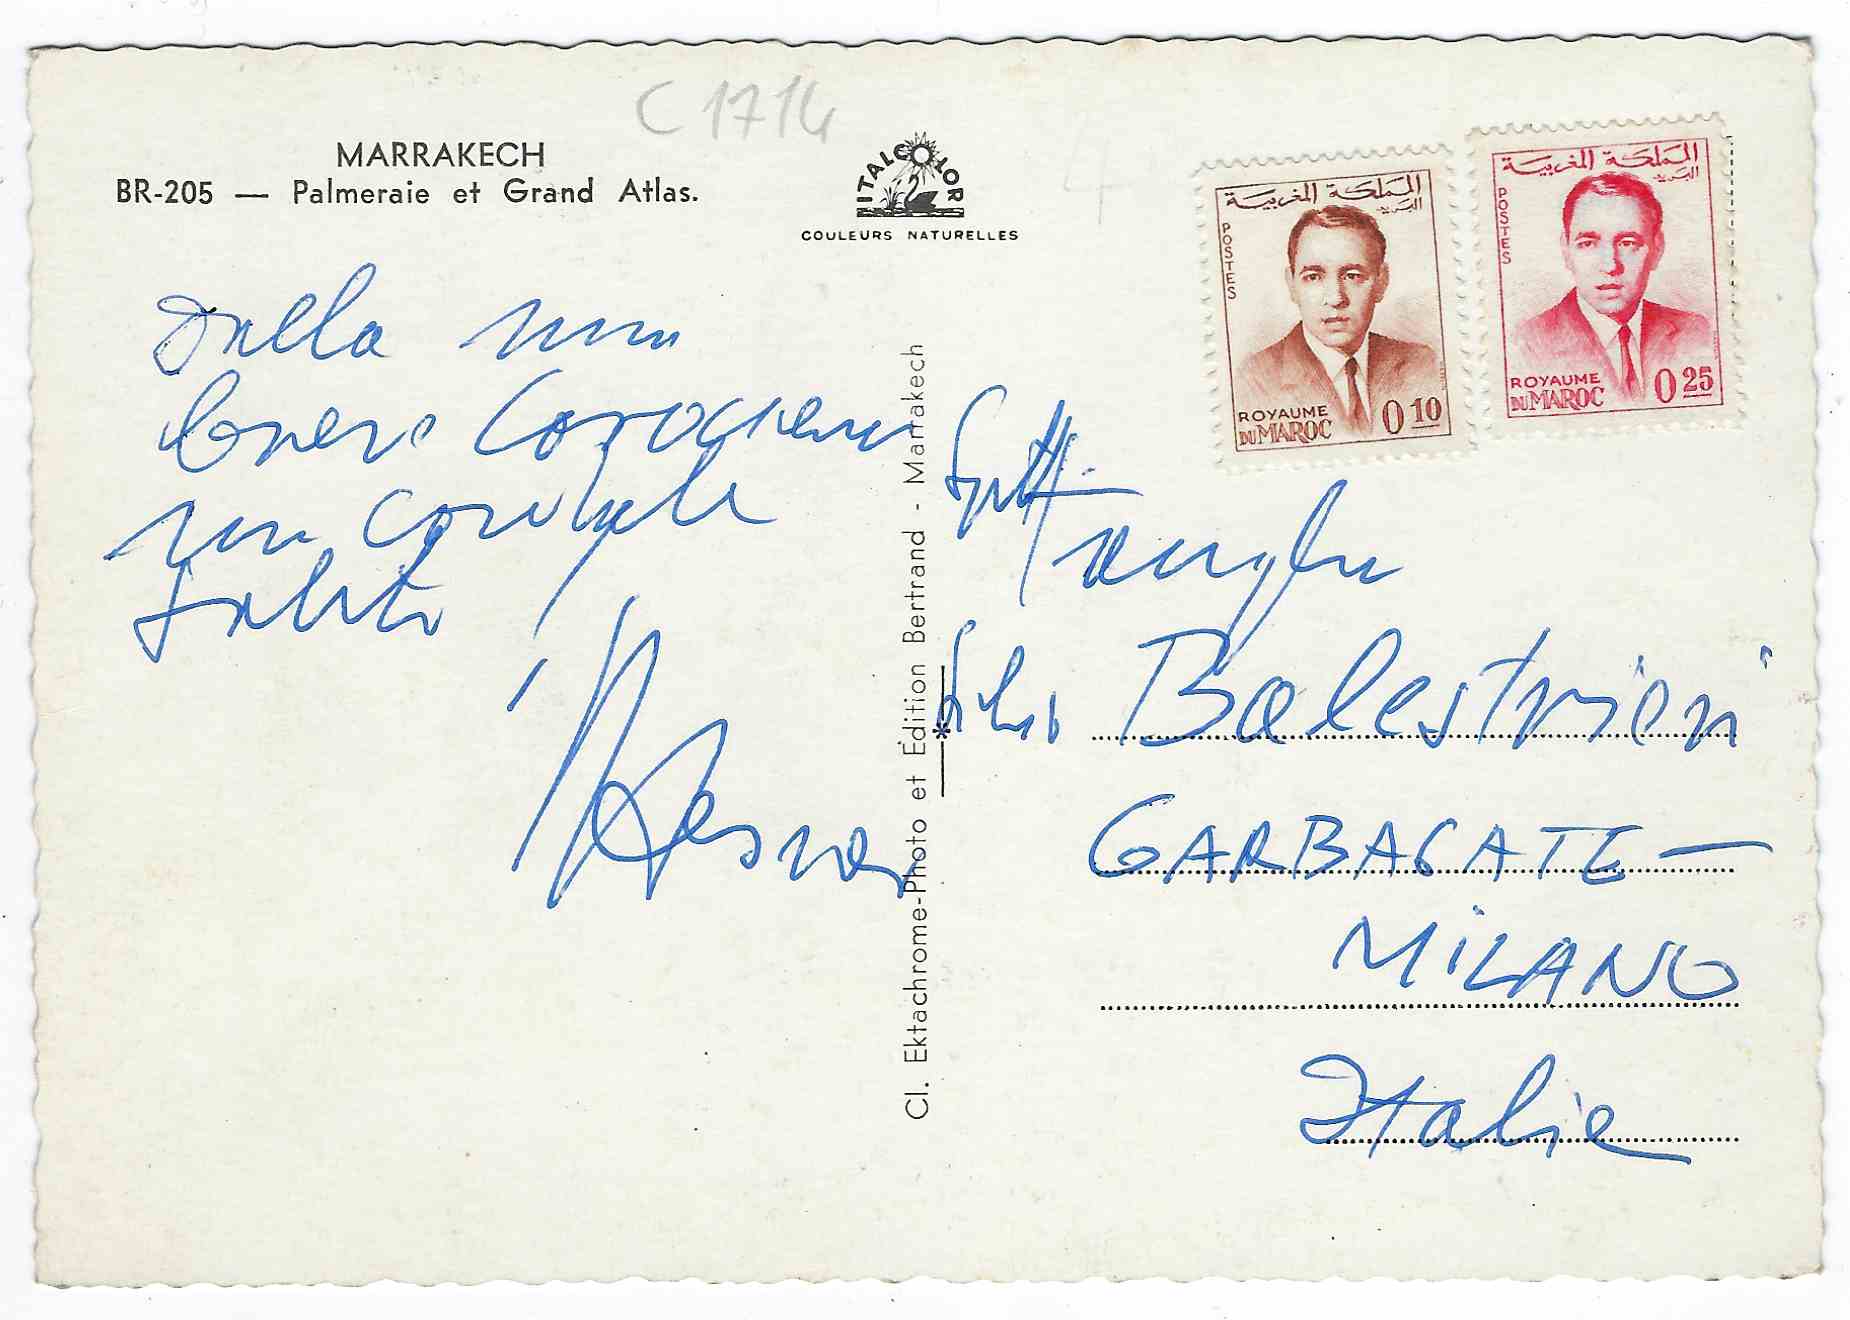 C 1714
MARRAKECH
BR-205 — Palmeraie et Grand Atlas.
ITALCOLOR
COULEURS NATURELLES
المملكة المغربية
البريد
POSTES
ROYAUME
DU MAROC
0 10
المملكة المغربية
البريد
POSTES
ROYAUME
DU MAROC
0 25
Dalla mia
un cordiale
saluto
Cl. Ektachrome-Photo et Édition Bertrand - Marrakech
Spett.
Famiglia
Silvio Balestrieri
GARBAGATE —
MILANO
Italie